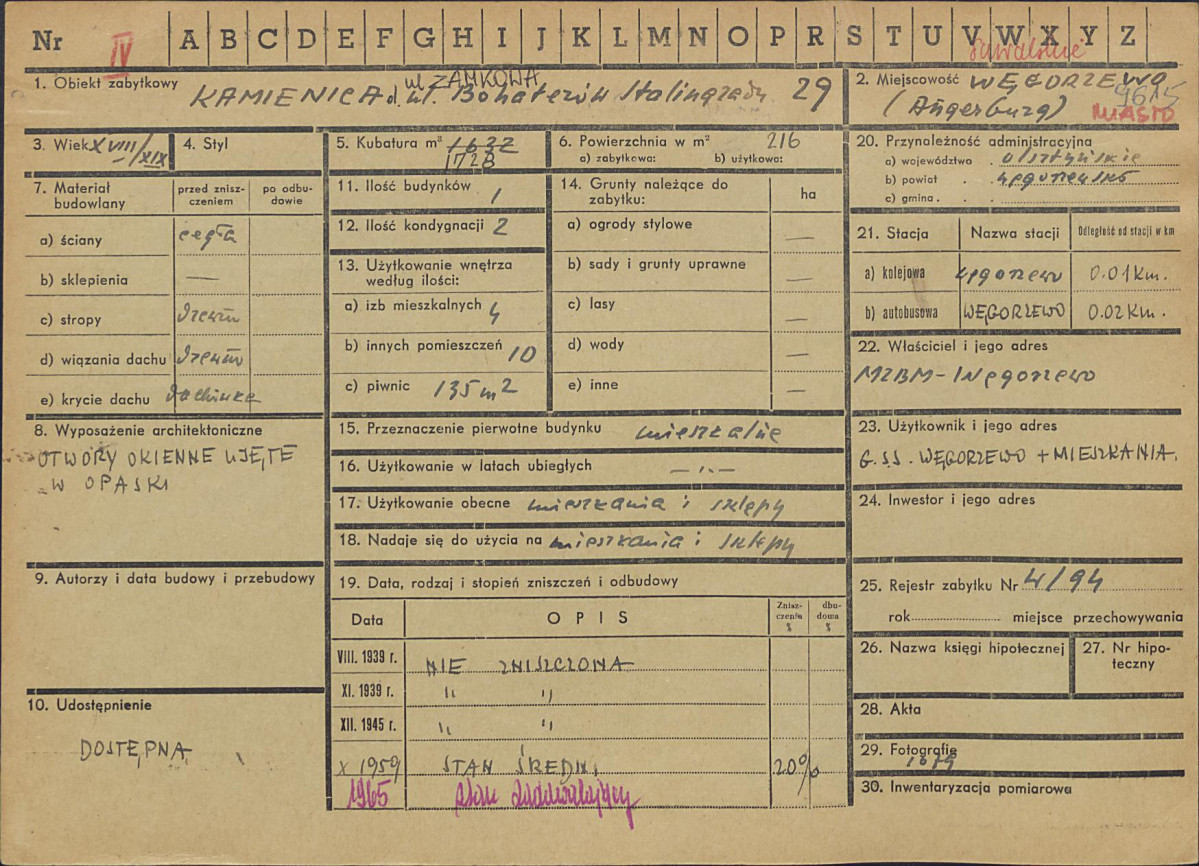 Nr IV A B C D E F G H I J K L M N O P R S T U V W X Y Z
suwalskie
1. Obiekt zabytkowy ul. ZAMKOWA
KAMIENICA d. ul. Bohaterów Stalingradu 29
2. Miejscowość WĘGORZEWO
(Angerburg) 9615
MIASTO
3. Wiek XVIII/XIX
4. Styl
5. Kubatura m³ 1632
1728
6. Powierzchnia w m² 216
a) zabytkowa: b) użytkowa:
7. Materiał budowlany
przed zniszczeniem
po odbudowie
a) ściany cegła
b) sklepienia —
c) stropy drewno
d) wiązania dachu drewno
e) krycie dachu dachówka
8. Wyposażenie architektoniczne
OTWORY OKIENNE UJĘTE
W OPASKI
9. Autorzy i data budowy i przebudowy
10. Udostępnienie
DOSTĘPNA
11. Ilość budynków 1
12. Ilość kondygnacji 2
13. Użytkowanie wnętrza
według ilości:
a) izb mieszkalnych 4
b) innych pomieszczeń 10
c) piwnic 135 m2
14. Grunty należące do
zabytku: ha
a) ogrody stylowe —
b) sady i grunty uprawne —
c) lasy —
d) wody —
e) inne —
15. Przeznaczenie pierwotne budynku mieszkalne
16. Użytkowanie w latach ubiegłych — „ —
17. Użytkowanie obecne mieszkania i sklepy
18. Nadaje się do użycia na mieszkania i sklepy
19. Data, rodzaj i stopień zniszczeń i odbudowy
Data
OPIS
Zniszczenia %
dbudowa %
VIII. 1939 r. NIE ZNISZCZONA
XI. 1939 r. " "
XII. 1945 r. " "
X 1959 STAN ŚREDNI 20%
1965 stan zadowalający
20. Przynależność administracyjna
a) województwo . olsztyńskie
b) powiat . . węgorzewski
c) gmina . .
21. Stacja
Nazwa stacji
Odległość od stacji w km
a) kolejowa Węgorzewo 0.01 Km.
b) autobusowa WĘGORZEWO 0.02 Km.
22. Właściciel i jego adres
MZBM - Węgorzewo
23. Użytkownik i jego adres
G.S.S. WĘGORZEWO + MIESZKANIA.
24. Inwestor i jego adres
25. Rejestr zabytku Nr 4/94
rok miejsce przechowywania
26. Nazwa księgi hipotecznej
27. Nr hipoteczny
28. Akta
29. Fotografie
30. Inwentaryzacja pomiarowa